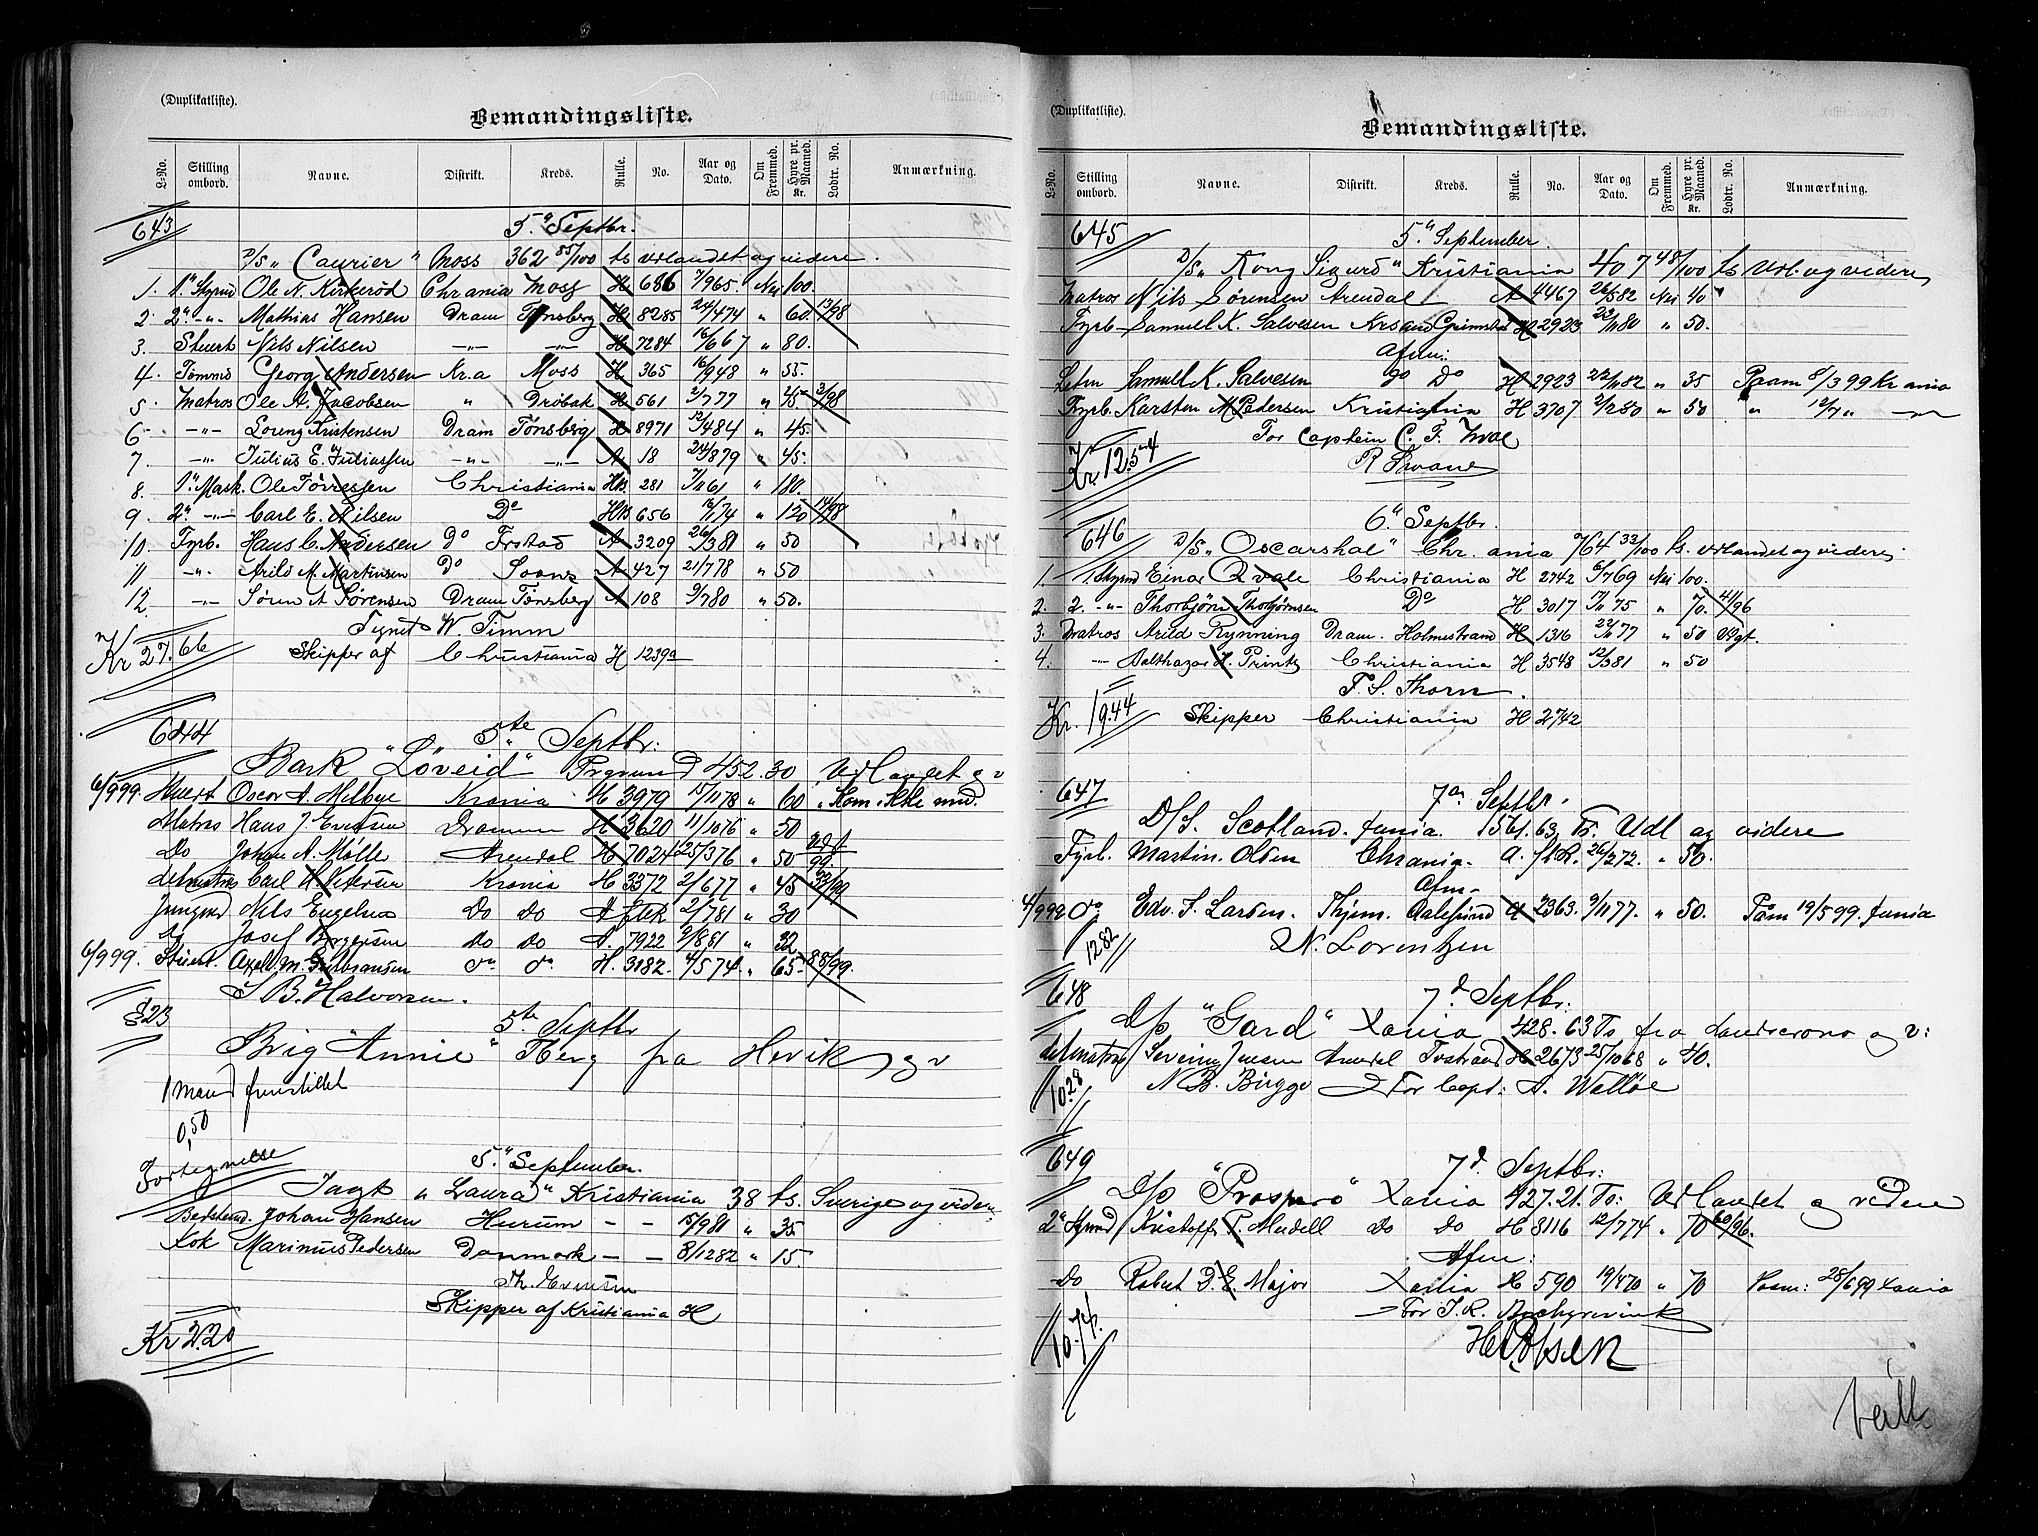 (Duplikatliste).
Bemandingsliste.
L-No. Stilling ombord. Navne. Distrikt. Kreds. Rulle. No. Aar og Dato. Om Fremmed. Hyre pr. Maaned. Kr. Lodtr. No. Anmærkning.
643 5." Septbr.
D/S „ Courier " Moss 362 85/100 ts Udlandet og videre.
1. 1" Styrmd Ole N. Kirkerød Chrania Moss H 686 7/965. Nei 100.
2. 2" -"- Mathias Hansen Dram Tønsberg H 8285 24/474 " 60. 13/98
3. Stuert Nils Nilsen -"- -"- H 7284 16/667 " 80.
4. Tømmd Georg Andersen Kr.a Moss H 365 16/948 " 55.
5. Matros Ole A. Jacobsen " Drøbak H 561 2/777 " 45. 3/98
6. -"- Lorenz Kristensen Dram Tønsberg H 8971 13/484 " 45.
7. -"- Julius E. Juliussen -"- -"- A 18 24/879 " 45.
8. 1" Mask. Ole Torressen Christiania HB. 281 7/1161 " 180.
9. 2" -"- Carl E. Nilsen Do HB 656 16/174 " 120 14/98
10. Fyrb. Hans C. Andersen Do Frstad A 3209 26/381 " 50
11. -"- Arild M. Martinsen Do Soon A 427 21/778 " 50
12. -"- Søren A Sørensen Dram Tønsberg A 108 9/780 " 50.
Signet W. Timm
Kr 27.66 Skipper af Christiania H 1239a
644 5te Septbr:
Bark "Løveid" Prgrund 452.30 Udlandet o v
6/999. Stuert Oscar A. Melbye Krania H 3979 15/1178 " 60 " Kom ikke med.
Matros Hans J Evensen Drammen H 3620 11/1076 " 50
Do Johan A. Mølle Arendal H 7024 25/376 " 50 Udt 99
Letmatros Carl A. Petersen Krania H 3372 2/677 " 45 32/99
Jungmd Nils Engelsen Do Do A 2/781 " 30
Do Josef Børgesen do do A. 7922 9/881 " 32
6/999. Stuert. Axel. M. Gulbransen do. do. H. 3182. 4/574. " 65. 88/99.
S B. Halvorsen.
823 5te Septbr
Brig "Annie" Tberg fra Hovik o v
1 Mand fremstillet
0,50
Fortegnelse 5." September.
Jagt „ Laura" Kristiania 38 ts. Sverige og videre
Bedstmd. Johan Hansen Hurum - - 15/981 " 35.
Kok Marinus Pedersen Danmark - - 8/1282 " 15.
Th. Evensen
Skipper af Kristiania H
Kr 2.20
(Duplikatliste).
Bemandingsliste.
L-No. Stilling ombord. Navne. Distrikt. Kreds. Rulle. No. Aar og Dato. Om Fremmed. Hyre pr. Maaned. Kr. Lodtr. No. Anmærkning.
645 5." September.
D/S „ Kong Sigurd " Kristiania 407 48/100 ts Udl. og videre
Matros Nils Sørensen Arendal A 4467 26/582 Nei 40
Fyrb. Samuel K. Salvesen Krsand Grimstad H 2923 22/1180 " 50.
Afm:
Letm Samuel K. Salvesen Do Do H 2923 22/1182 " 35 Paam 8/3 99 Kr ania
Fyrb. Karsten M Pedersen Kristiania H 3707 2/250 " 50 " 12/7 " -"-
Kr. 12.54 For Captein C. F.
R Svane
646 6." Septbr.
D/S „ Oscarshal " Chr. ania 764 33/100 ts. Udlandet og videre.
1. 1 Styrmd Einar Qvale Christiania H 2742 6/769 Nei 100.
2. 2. -"- Thorbjørn Thorbjørnsen Do H 3017 7/1175 " 70. 41/96
3. Matros Arild Rynning Dram. Holmestrand H 1316 22/1077 " 50 Udgt.
4. -"- Balthazar H. Printz Christiania H 3548 12/381 " 50
T. S. Thorn.
Kr. 19.44 Skipper Christiania H 2742
647 7de Septbr.
D/S. Scotland. Xania. 1561.63 Ts. Udl og videre
Fyrb. Martin. Olsen Chrania. A. 26/272. " 50.
Afm.
4/999 do Edv. S. Larsen. Thjem. Aalesund A 2363. 9/1177. " 50. Paam 19/5 99. Xania
1282 N. Lorentzen
648 7d Septbr:
D/S "Gard" Xania 428.63 Ts fra Landscrona o v:
Letmatros Severin Jensen Arendal Tvstrand H 2673 25/1068 " 40.
10.28 N. B. Birgge For Capt: A. Walløe
649 7d Septbr:
D/S "Prospero" Xania 427.21. Ts: Udlandet og videre
2" Stymd Kristoffer P. Mudell Do Do H 8116 12/774 " 70 60/96.
Afm:
Do Robert D. E. Major Xania H 590 19/470 " 70 Paam: 28/699 Xania
For J. R.
10.74.
H Olsen